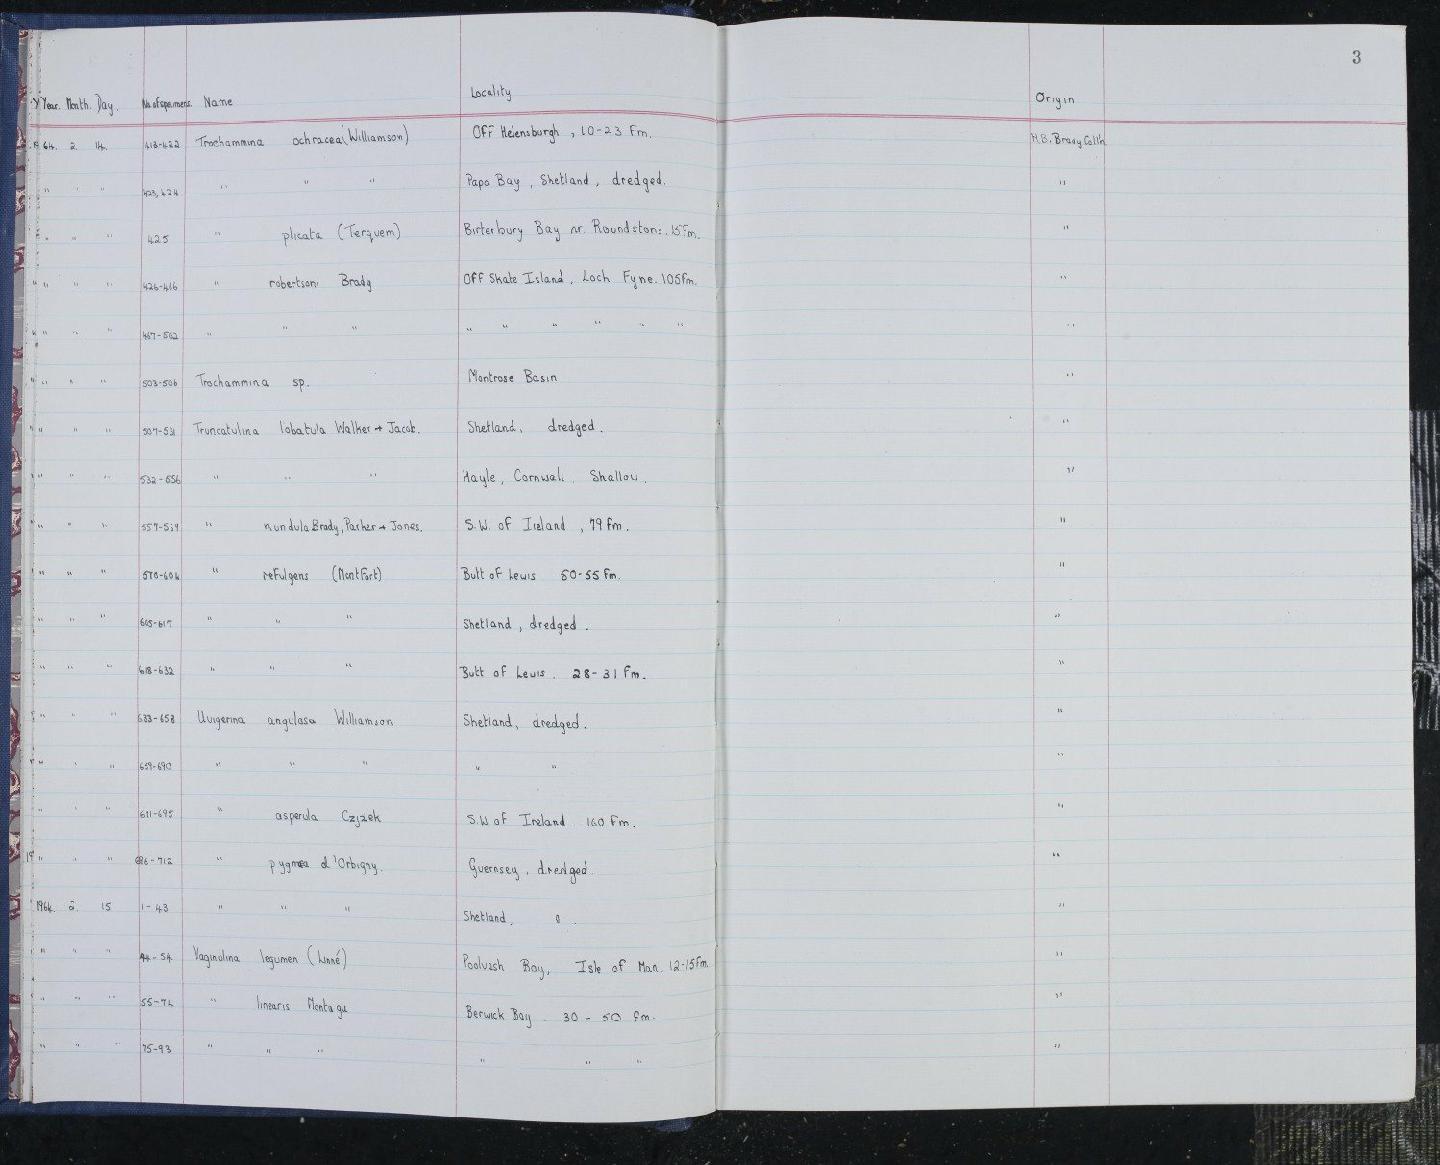 3
Year. Month. Day. No. of specimens. Name Locality Origin
64. 2. 14. 413-422 Trochammina ochracea (Williamson) Off Helensburgh, 10-23 Fm. H.B. Brady Colln
" " " 423, 424 " " " Papa Bay, Shetland, dredged. "
" " " 425 " plicata (Terquem) Birterbury Bay nr. Roundstone. 15 Fm. "
" " " 426-416 " robertsoni Brady Off Skate Island, Loch Fyne. 105 Fm. "
" " " 467-502 " " " " " " " " " "
" " " 503-506 Trochammina sp. Montrose Basin "
" " " 507-531 Truncatulina lobatula Walker + Jacob. Shetland, dredged. "
" " " 532-556 " " " Hayle, Cornwall. Shallow. "
" " " 557-569 " nundula Brady, Parker + Jones. S.W. of Ireland, 79 fm. "
" " " 570-604 " refulgens (Montfort) Butt of Lewis 50-55 Fm. "
" " " 605-617 " " " Shetland, dredged. "
" " " 618-632 " " " Butt of Lewis. 28-31 Fm. "
" " " 633-658 Uvigerina angulosa Williamson Shetland, dredged. "
" " " 659-690 " " " " " "
" " " 691-695 " asperula Czjzek S.W of Ireland 160 Fm. "
" " " 696-712 " pygmea d'Orbigny. Guernsey, dredged "
1964. 2. 15 1-43 " " " Shetland, "
" " " 44-54 Vaginulina legumen (Linné) Poolvash Bay, Isle of Man. 12-15 Fm. "
" " " 55-74 " linearis Montagu Berwick Bay. 30-50 fm. "
" " " 75-93 " " " " " " "